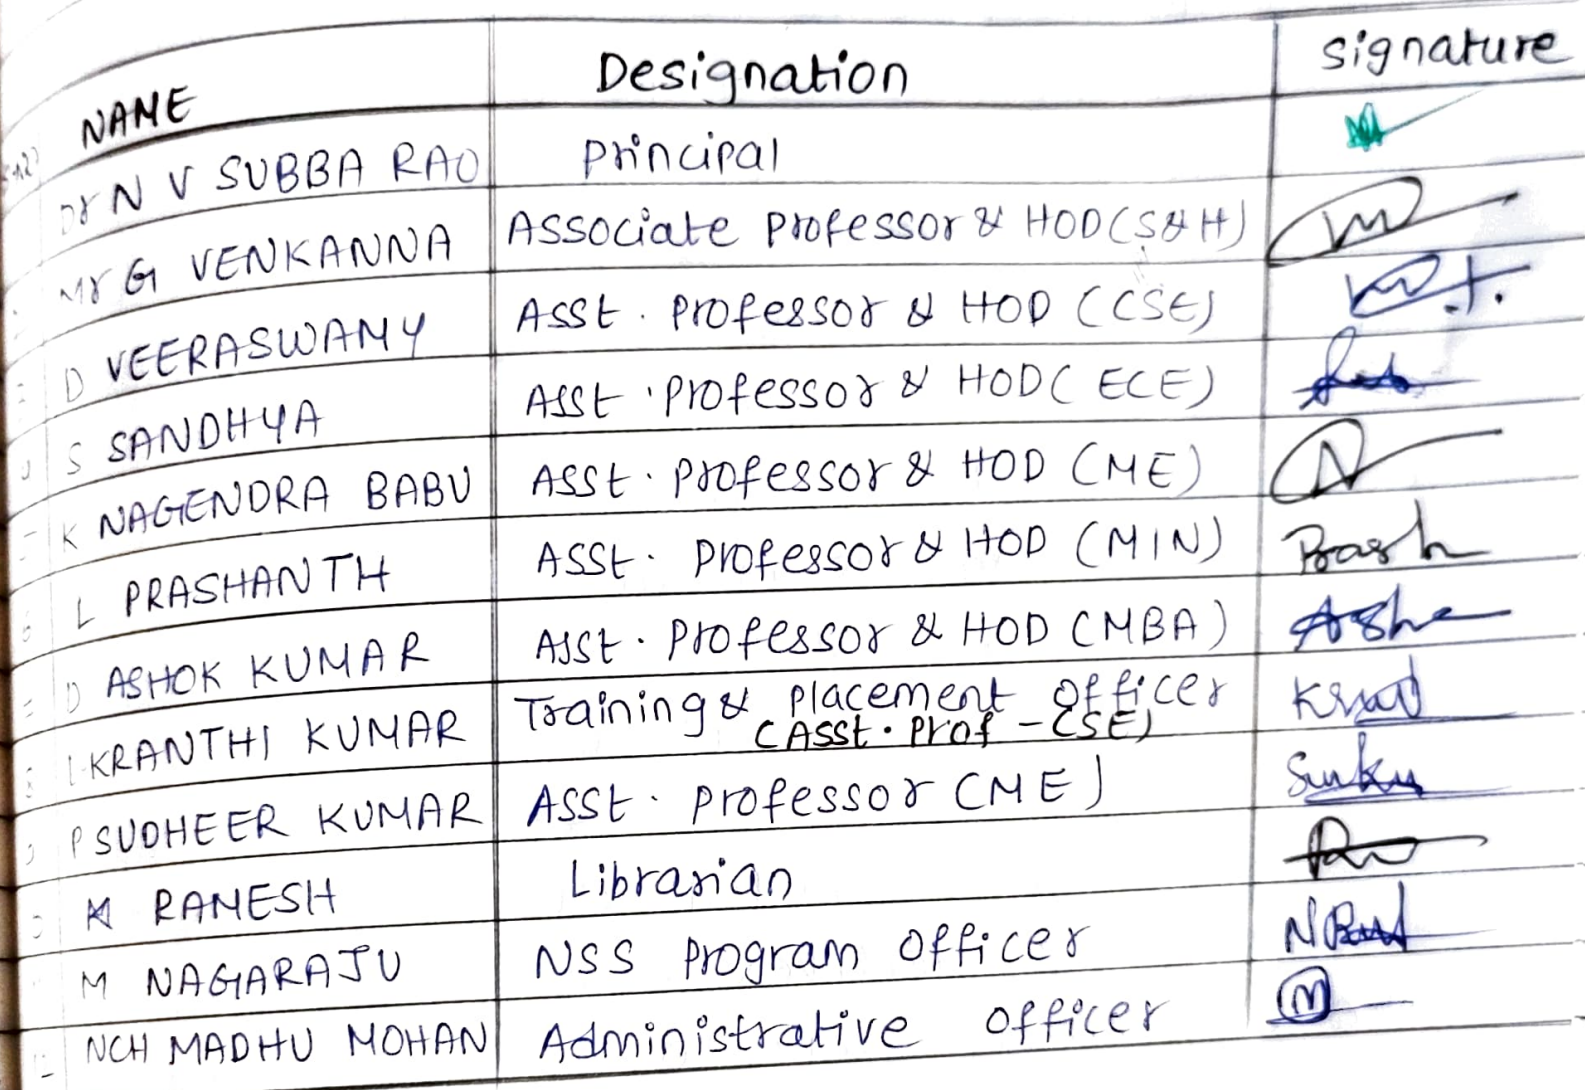 NAME Designation Signature
Dr N V SUBBA RAO Principal
Mr G VENKANNA Associate Professor & HOD (S&H)
D VEERASWAMY Asst. Professor & HOD (CSE)
S SANDHYA Asst. Professor & HOD (ECE)
K NAGENDRA BABU Asst. Professor & HOD (ME)
L PRASHANTH Asst. Professor & HOD (MIN) Prash
D ASHOK KUMAR Asst. Professor & HOD (MBA)
KRANTHI KUMAR Training & Placement Officer
(Asst. Prof - CSE)
P SUDHEER KUMAR Asst. Professor (ME)
RAMESH Librarian
M NAGARAJU NSS Program Officer
NCH MADHU MOHAN Administrative Officer